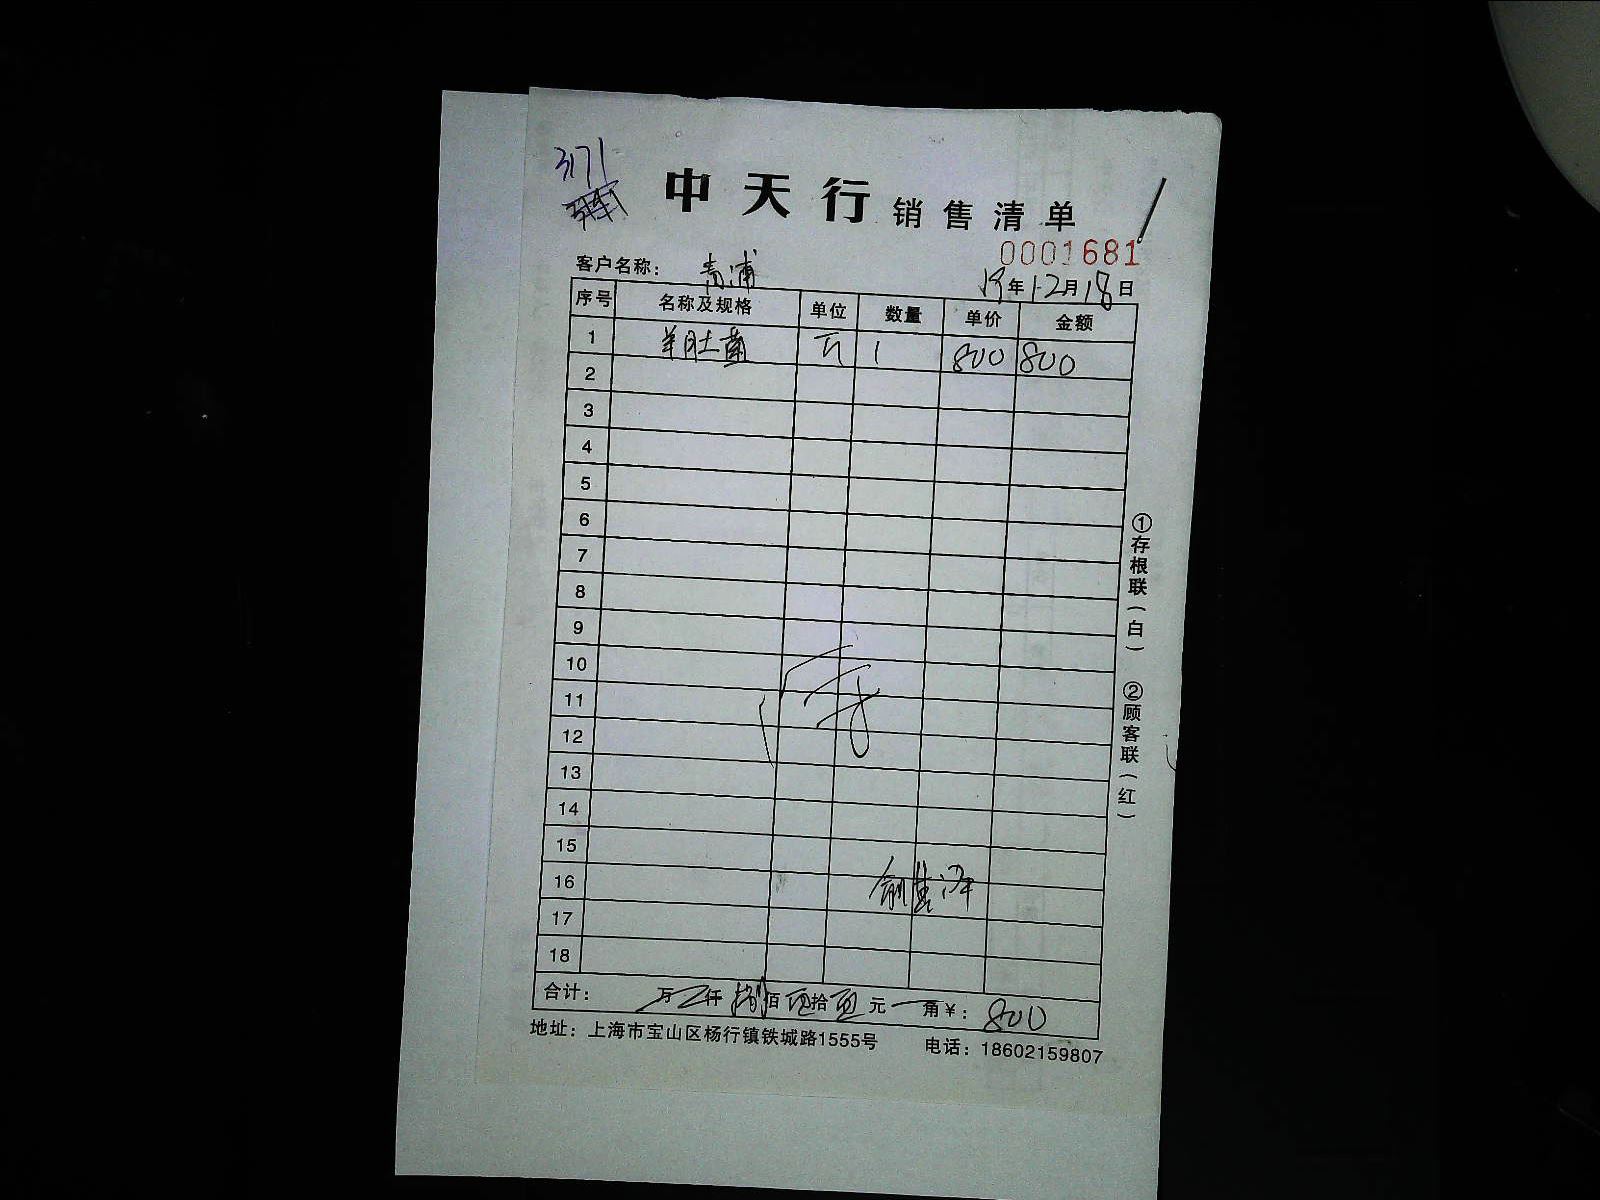 3171
中天行 销售清单
0001681
客户名称： 青浦 19年12月18日
序号 名称及规格 单位 数量 单价 金额
1 羊肚菌 斤 1 800 800
2
3
4
5
6
7
8
9
10
11
12
13
14
15
16
17
18
合计： 万 仟 捌佰 拾 元 角 ¥： 800
地址：上海市宝山区杨行镇铁城路1555号 电话：18602159807
①存根联（白） ②顾客联（红）